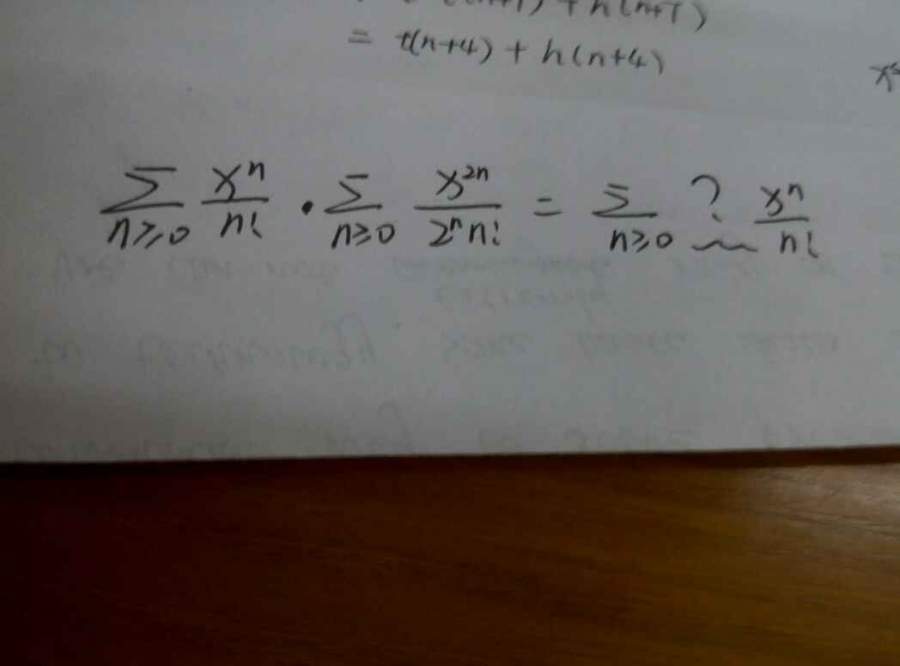 + h(n+1)
= t(n+4) + h(n+4)
∑_{n≥0} x^n/n! · ∑_{n≥0} x^{2n}/(2^n n!) = ∑_{n≥0} ? x^n/n!